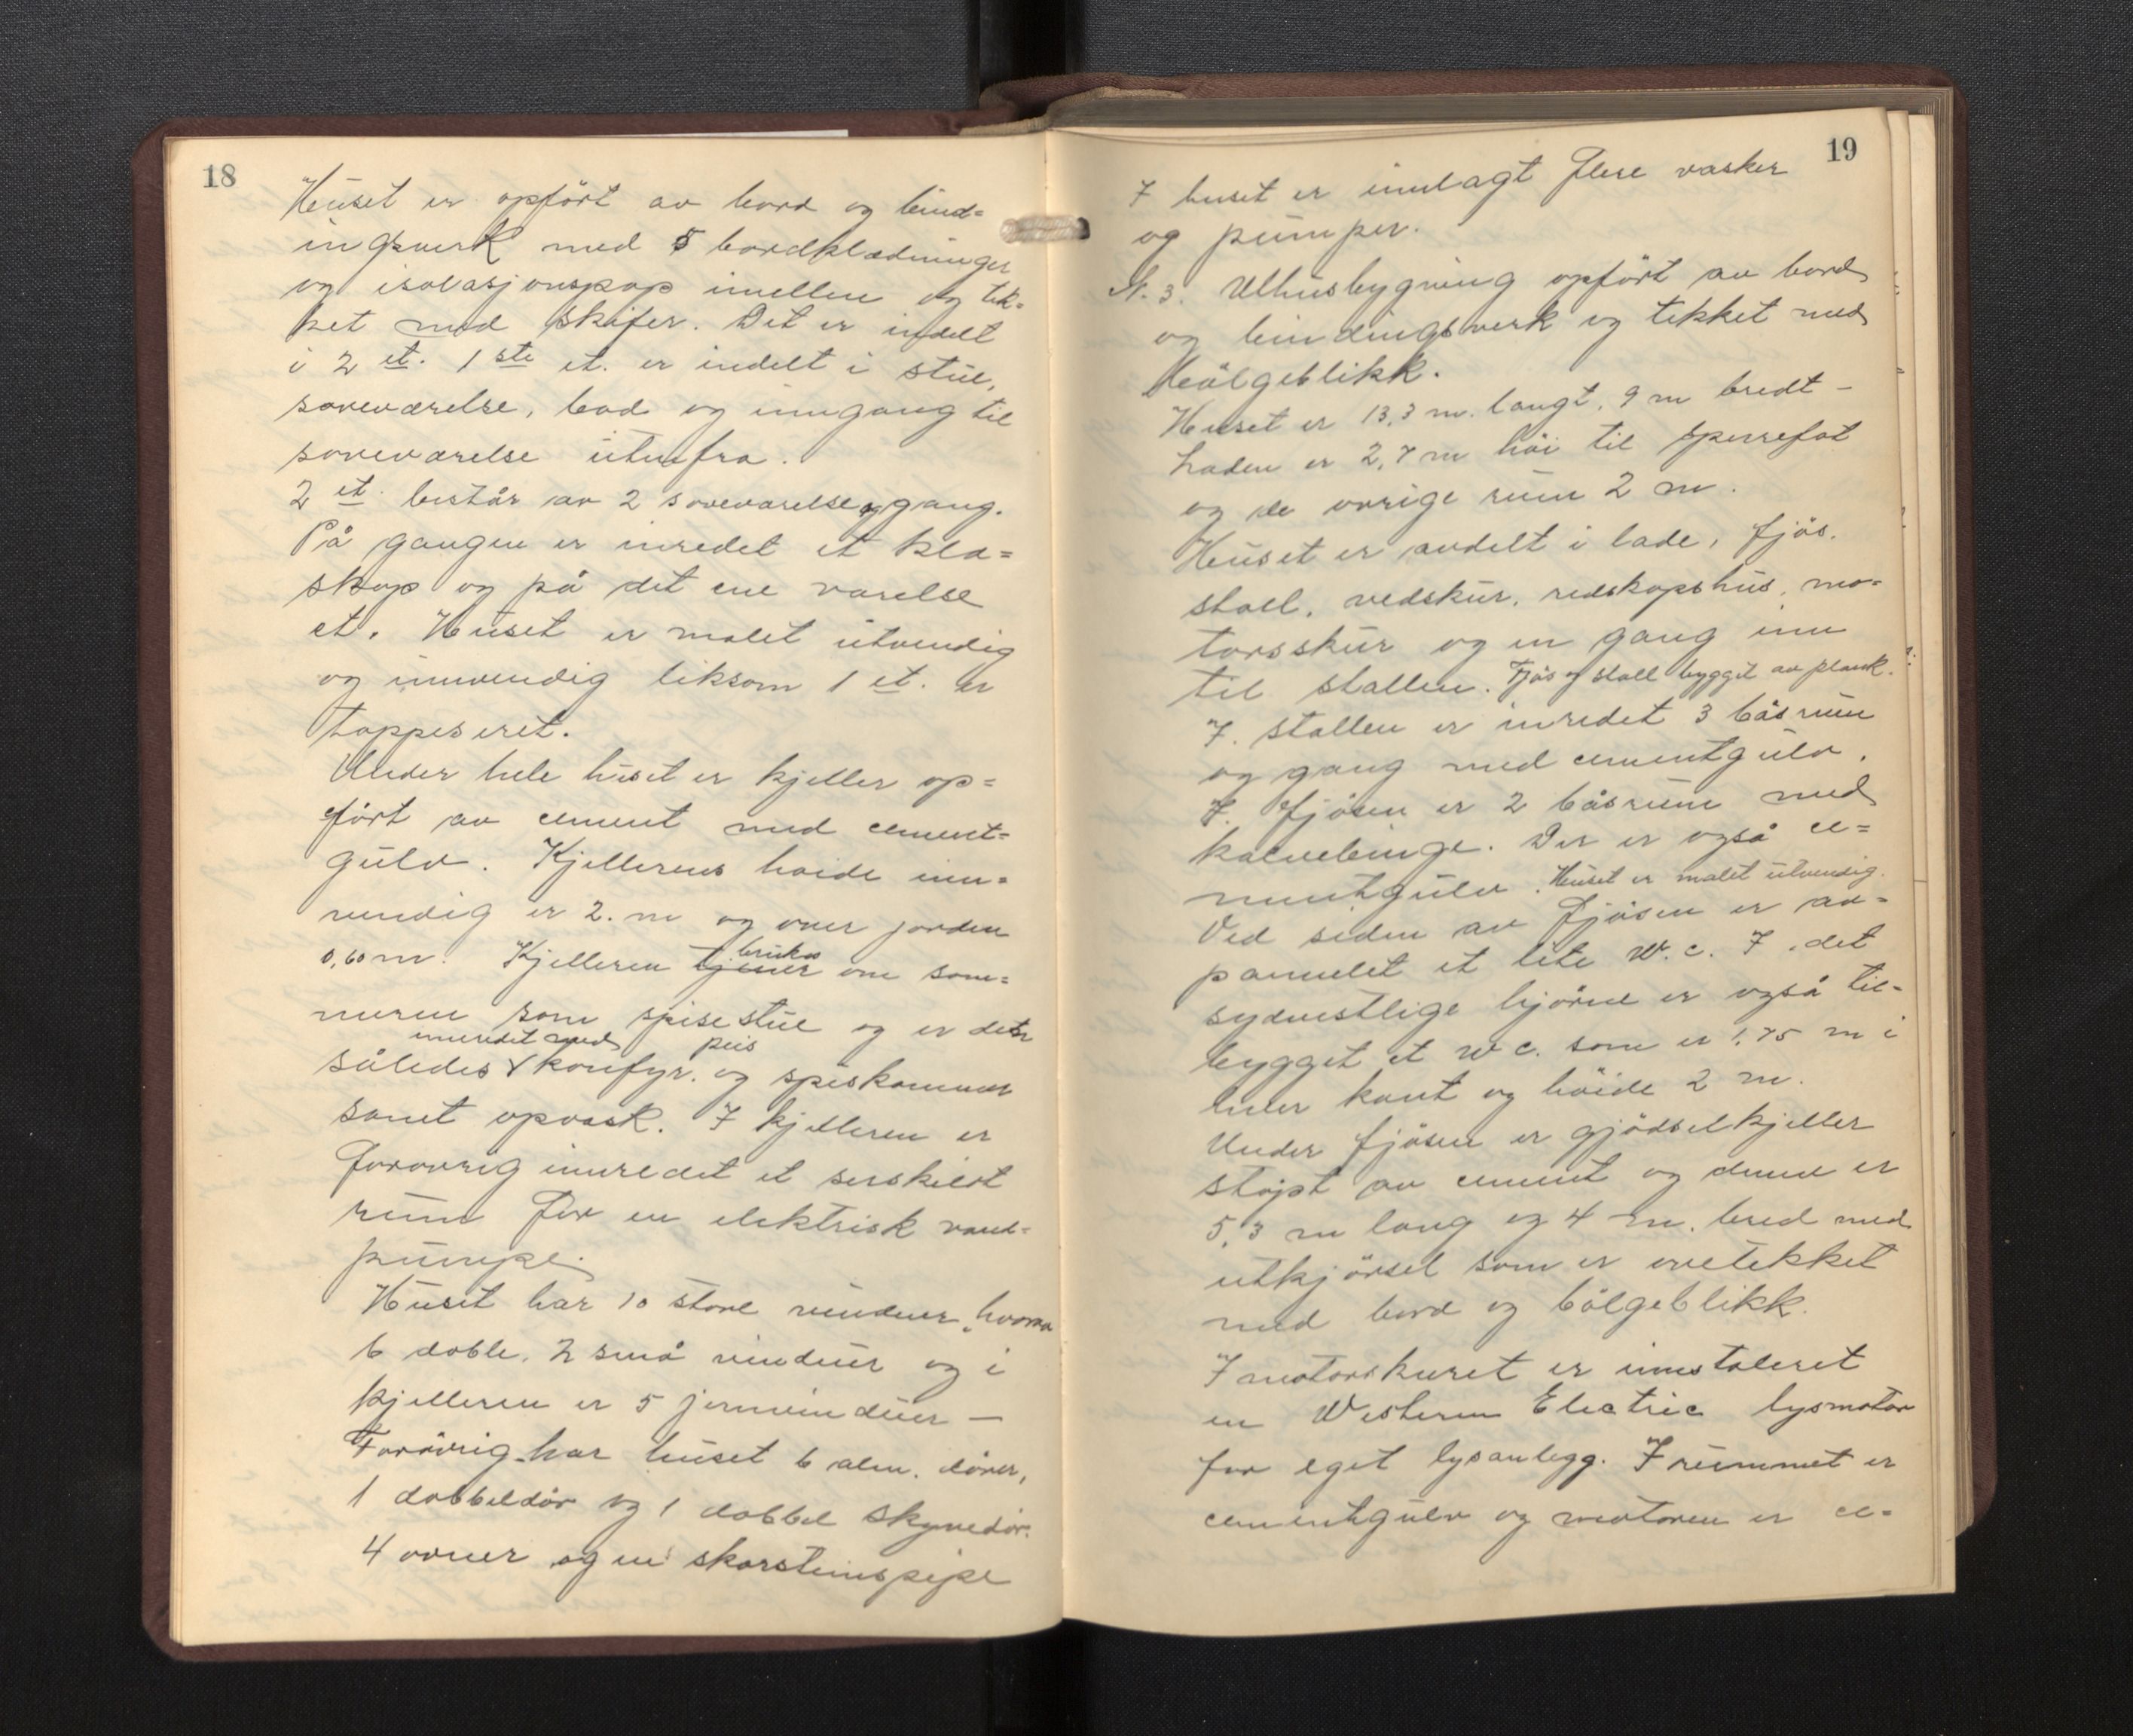 18
Huset er opført av bord og bind=
ingsverk med 5 bordklædninger
og isolasjonspap imellem og tek=
ket med skifer. Det er indelt
i 2 et. 1ste et. er indelt i stue,
soveværelse, bad og inngang til
soveværelse utenfra.
2 et. består av 2 soveværelse og gang.
På gangen er inredet et kla=
skap og på det ene værelse
et. Huset er malet utvendig
og innvendig liksom 1 et. er
tappeseret.
Under hele huset er kjeller op=
ført av cement med cement=
gulv. Kjellerens høide inn=
vendig er 2. m og over jorden
0,60 m. Kjelleren tjener brukes om som=
meren som spisestue og er den
således innredet med komfyr. peis og spiskammer
samt opvask. I kjelleren er
forøvrig innredet et serskilt
rum for en elektrisk vand=
pumpe.
Huset har 10 store vinduer, hvorav
6 doble, 2 små vinduer og i
kjelleren er 5 jernvinduer –
Forøvrig har huset 6 alm. dører,
1 dobbeldør og 1 dobbel skyvedør.
4 ovner og en skorsteinspipe
19
I huset er innlagt flere vasker
og pumper.
N. 3. Uthusbygning opført av bord
og bindingsverk og tekket med
bølgeblikk.
Huset er 13,3 m. langt, 9 m bredt –
Laden er 2,7 m høi til sperrefot
og de øvrige rum 2 m.
Huset er avdelt i lade, fjøs,
stall, vedskur, redskapshus, mo=
torsskur og en gang inn
til stallen. Fjøs og stall bygget av plank.
I. stallen er inredet 3 båsrum
og gang med cementgulv.
I. fjøsen er 2 båsrum med
kalvebinge. Der er også ce=
mentgulv. Huset er malet utvendig.
Ved siden av fjøsen er av=
pannelet et lite W.c. I det
sydvestlige hjørne er også til=
bygget et W c. som er 1,75 m i
hver kant og høide 2 m.
Under fjøsen er gjødselkjeller
støpt av cement og denne er
5,3 m lang og 4 m. bred med
utkjørsel som er overtekket
med bord og bølgeblikk.
I motorskuret er innstaleret
en Western Electric lysmotor
for eget lysanlegg. I rummet er
cementgulv og motoren er ce=